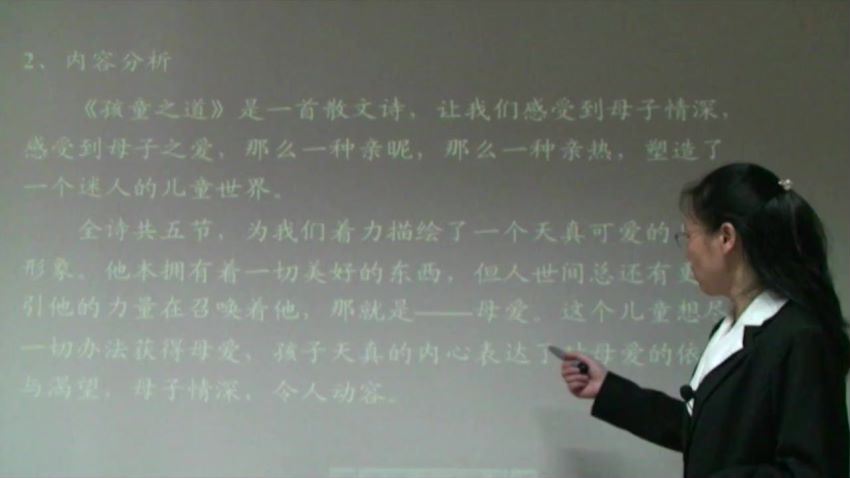 2、内容分析
《孩童之道》是一首散文诗，让我们感受到母子情深，
感受到母子之爱，那么一种亲昵，那么一种亲热，塑造了
一个迷人的儿童世界。
全诗共五节，为我们着力描绘了一个天真可爱的
形象。他本拥有着一切美好的东西，但人世间总还有更
引他的力量在召唤着他，那就是——母爱。这个儿童想尽
一切办法获得母爱，孩子天真的内心表达了对母爱的依
与渴望，母子情深，令人动容。